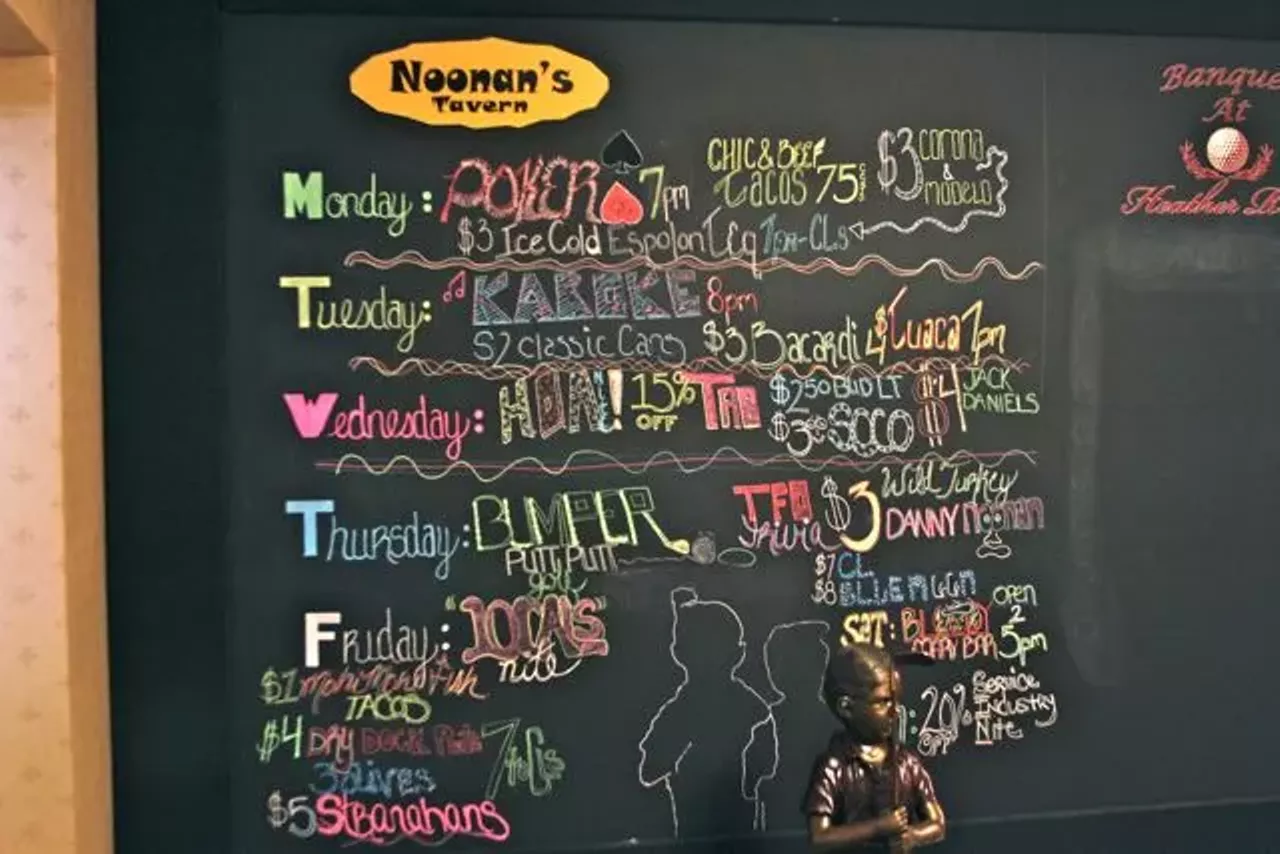 Noonan's
Tavern
Banque
At
Heather R
Monday: POKER 7pm CHIC & BEEF TACOS 75 $3 corona & modelo
$3 Ice Cold Espolon Teq 7pm-CLs
Tuesday: KAROKE 8pm
$2 classic Cans $3 Bacardi $4 Tuaca 7pm
Wednesday: 15% OFF TAB $2.50 BUD LT $4 JACK DANIELS
$3 SOCO
Thursday: BUMPER PUTT PUTT golf
Trivia $3 Wild Turkey
DANNY Noonan
$7 CL
$8
Friday: "LOCALS" nite
$1 Fish
TACOS
$4 DRY DOCK 7toCls
3 Olives
$5 Stranahans
SAT: BAR OPEN 2 5pm
20% OFF Service Industry Nite